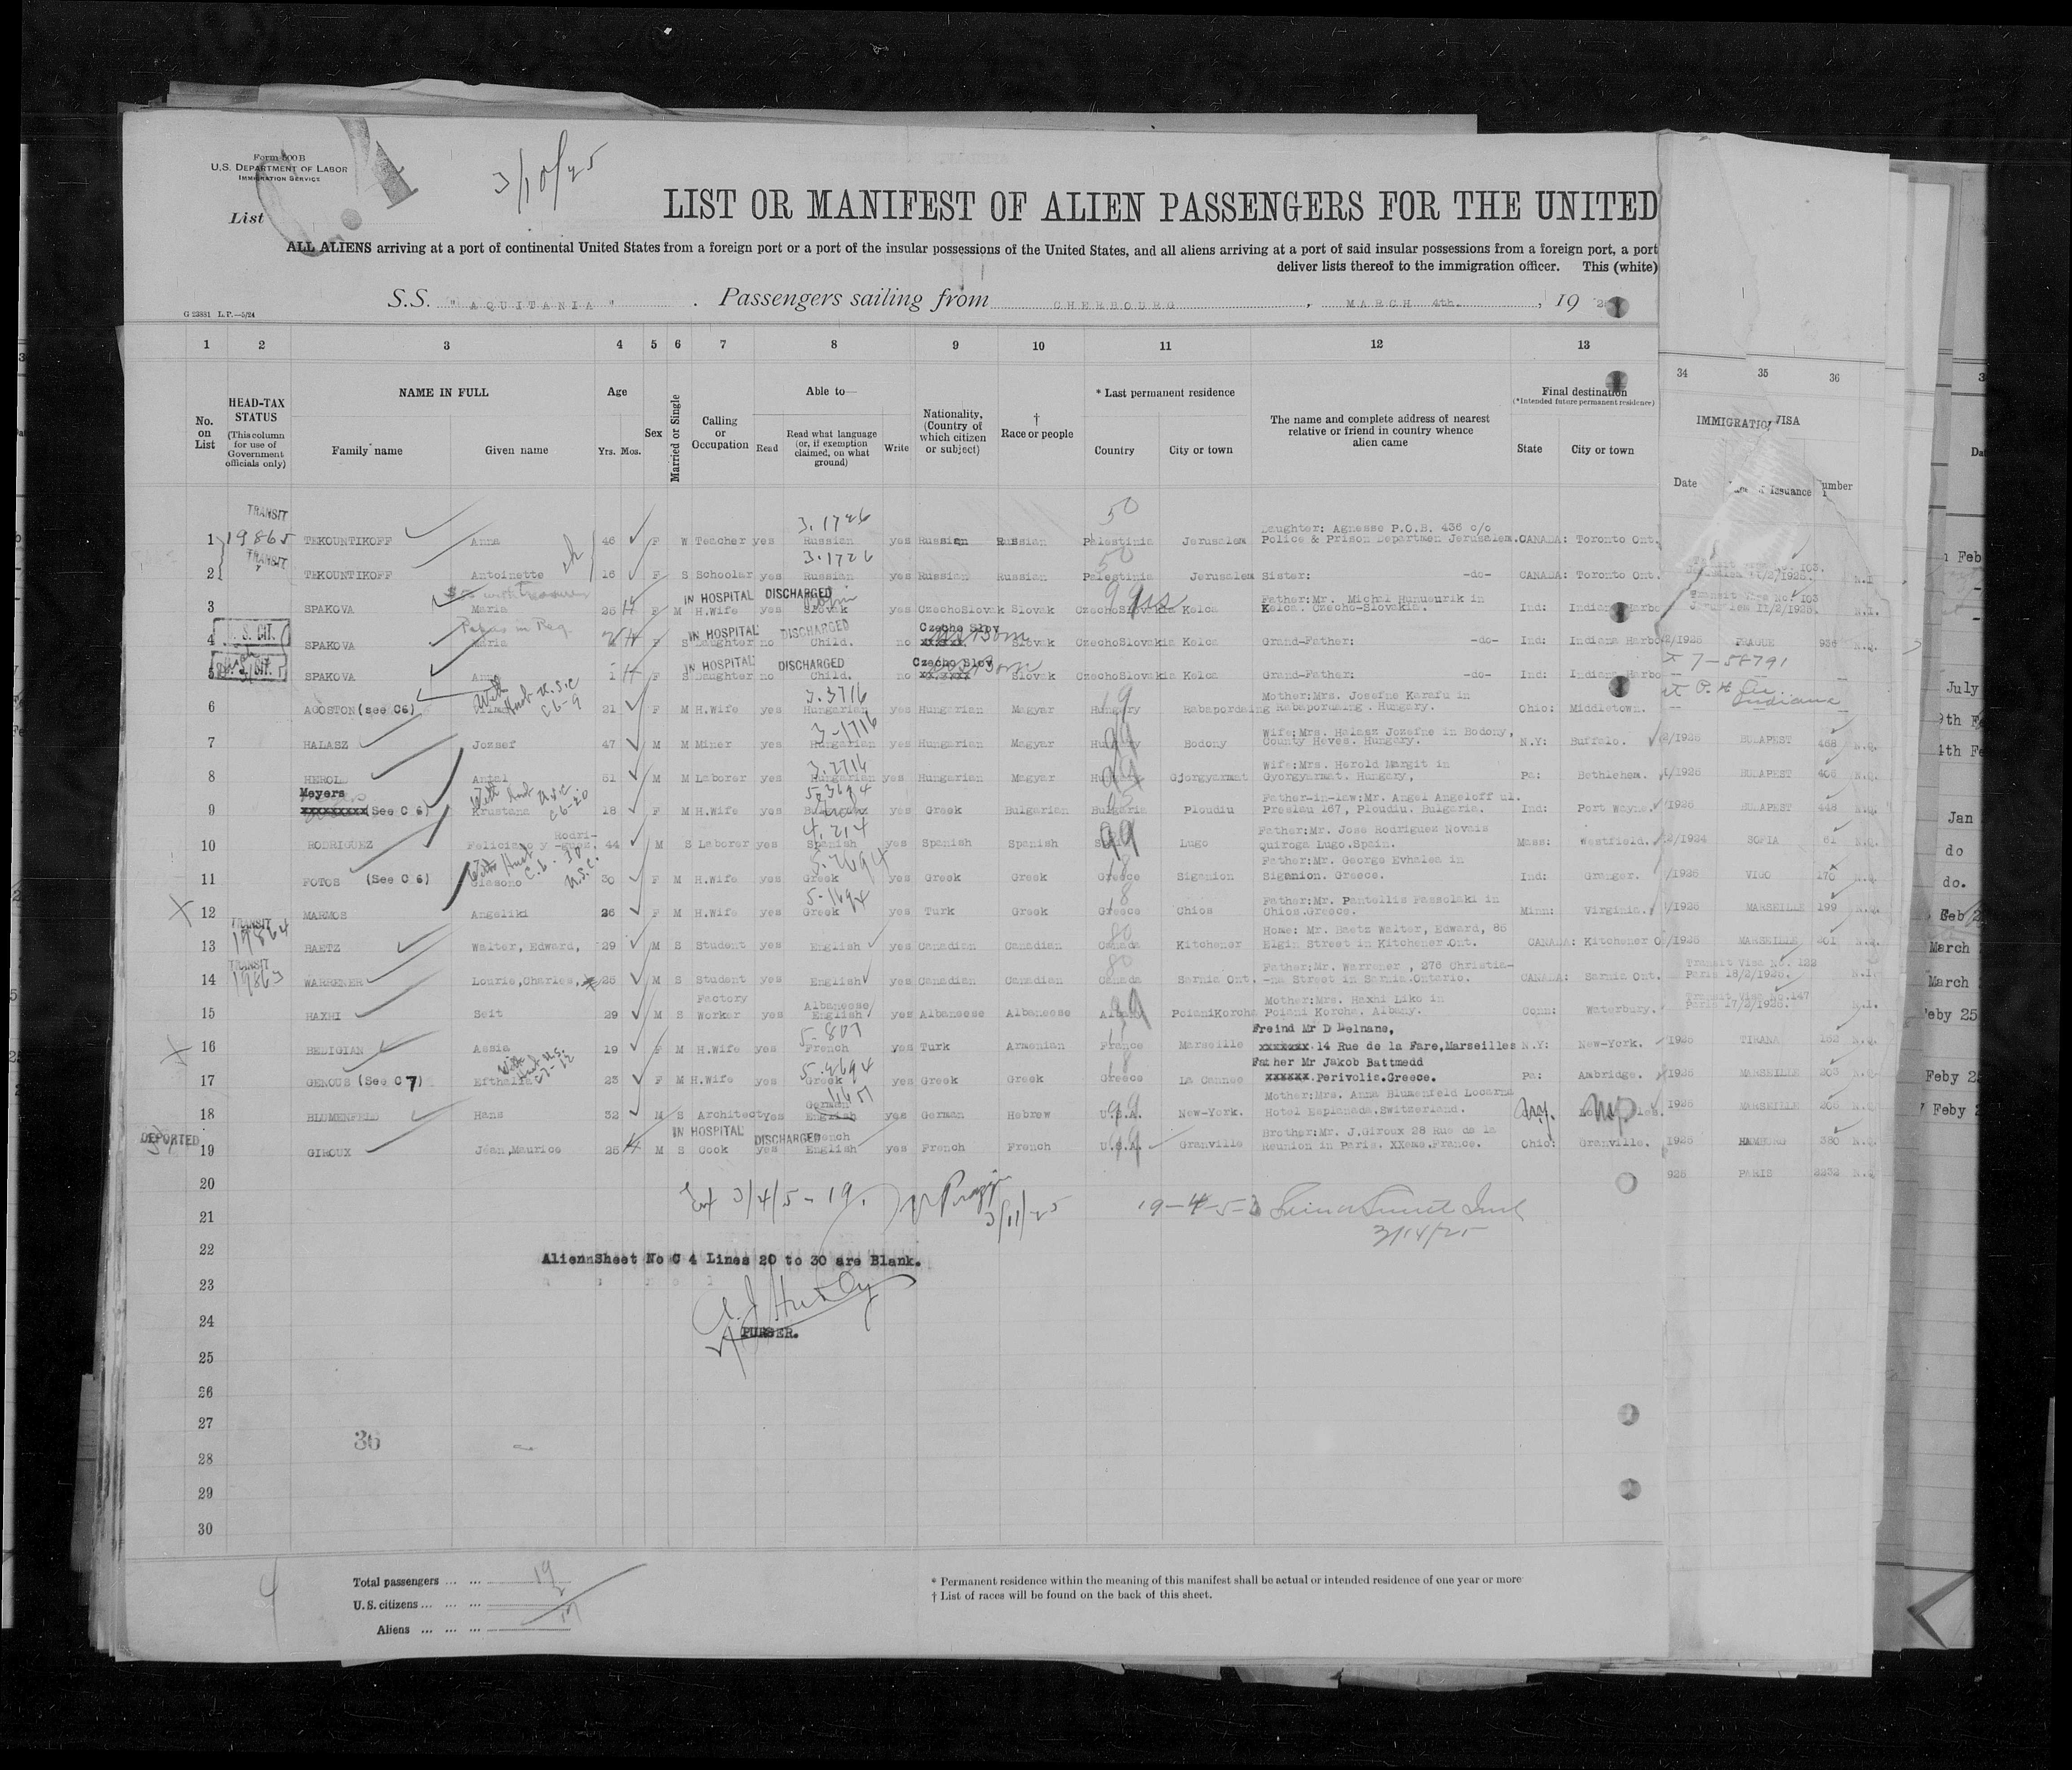 Form 500B
U.S. DEPARTMENT OF LABOR
IMMIGRATION SERVICE
List
3/10/25
LIST OR MANIFEST OF ALIEN PASSENGERS FOR THE UNITED
ALL ALIENS arriving at a port of continental United States from a foreign port or a port of the insular possessions of the United States, and all aliens arriving at a port of said insular possessions from a foreign port, a port
deliver lists thereof to the immigration officer. This (white)
S.S. " AQUITANIA " . Passengers sailing from CHERBOURG , MARCH 4th. , 19
G 23881 L.P.—5/24
1 2 3 4 5 6 7 8 9 10 11 12 13 34 35 36
No. on List
HEAD-TAX STATUS (This column for use of Government officials only)
NAME IN FULL Family name Given name
Age Yrs. Mos.
Sex
Married or Single
Calling or Occupation
Able to— Read Read what language (or, if exemption claimed, on what ground) Write
Nationality, (Country of which citizen or subject)
† Race or people
* Last permanent residence Country City or town
The name and complete address of nearest relative or friend in country whence alien came
Final destination (*Intended future permanent residence) State City or town
IMMIGRATION VISA Date Issuance umber
TRANSIT 3.1726 50
Daughter: Agnesse P.O.B. 436 c/o
1 19865 TEKOUNTIKOFF Anna 46 F W Teacher yes Russian yes Russian Russian Palestinia Jerusalem Police & Prison Departmen Jerusalem. CANADA: Toronto Ont.
TRANSIT 3.1726 50
2 TEKOUNTIKOFF Antoinette 16 F S Schoolar yes Russian yes Russian Russian Palestinia Jerusalem Sister: -do- CANADA: Toronto Ont.
IN HOSPITAL DISCHARGED
3 SPAKOVA Maria 25 F M H.Wife yes Slovak yes CzechoSlovak Slovak CzechoSlovakia Kelca Father: Mr. Michal Hunuenrik in
Kelca. Czecho-Slovakia. Ind: Indiana Harbo
U.S. CIT. IN HOSPITAL DISCHARGED Czecho Slov
4 SPAKOVA Maria F S Daughter no Child. no xxxxxx US Born Slovak CzechoSlovakia Kelca Grand-Father: -do- Ind: Indiana Harbo 2/1925 PRAGUE 936 N.Q.
U.S. CIT. IN HOSPITAL DISCHARGED Czecho Slov
5 SPAKOVA Anna 1 F S Daughter no Child. no xxxxxx US Born Slovak CzechoSlovakia Kelca Grand-Father: -do- Ind: Indiana Harbo 7-58791
With Hust U.S.C C6-9 3.3716 19
6 AGOSTON (see C6) 21 F M H.Wife yes Hungarian yes Hungarian Magyar Hungary Rabapordaing Mother: Mrs. Josefne Karafu in
Rabapordaing. Hungary. Ohio: Middletown. Indiana
3-1716 99
7 HALASZ Jozsef 47 M M Miner yes Hungarian yes Hungarian Magyar Hungary Bodony Wife: Mrs. Halasz Jozefne in Bodony,
County Heves. Hungary. N.Y: Buffalo. 2/1925 BUDAPEST 468 N.Q.
3.2716 99
8 HEROLD Antal 51 M M Laborer yes Hungarian yes Hungarian Magyar Hungary Gjorgyarmat Wife: Mrs. Herold Margit in
Gyorgyarmat. Hungary, Pa: Bethlehem. 1/1925 BUDAPEST 406 N.Q.
Meyers
9 xxxxxxxxx (See C 6) Krustana With Hust U.S.C C6-20 18 F M H.Wife yes yes Greek Bulgarian Bulgaria Ploudiu Father-in-law: Mr. Angel Angeloff ul.
Preslau 167, Ploudiu. Bulgaria. Ind: Fort Wayne. /1925 BUDAPEST 448 N.Q.
4.214 99
10 RODRIGUEZ Feliciano y Rodri-guez. 44 M S Laborer yes Spanish yes Spanish Spanish Lugo Father: Mr. Jose Rodriguez Novais
Quiroga Lugo. Spain. Mass: Westfield. 2/1924 SOFIA 61 N.Q.
5.2694 18
11 FOTOS (See C 6) With Hust C.6. 10 U.S.C. 30 F M H.Wife yes Greek yes Greek Greek Greece Siganion Father: Mr. George Evhalea in
Siganion. Greece. Ind: Granger. /1925 VIGO 170 N.Q.
5-1694 8
12 MARMOS Angeliki 26 F M H.Wife yes Greek yes Turk Greek Greece Chios Father: Mr. Pantellis Fassolaki in
Chios. Greece. Minn: Virginia. /1925 MARSEILLE 199 N.Q.
TRANSIT 19864 80
13 BAETZ Walter, Edward, 29 M S Student yes English yes Canadian Canadian Canada Kitchener Home: Mr. Baetz Walter, Edward, 85
Elgin Street in Kitchener Ont. CANADA: Kitchener O /1925 MARSEILLE 201 N.Q.
TRANSIT 19863 80
14 WARRENER Lourie, Charles, 25 M S Student yes English yes Canadian Canadian Canada Sarnia Ont. Father: Mr. Warrener, 276 Christia-
-na Street in Sarnia. Ontario. CANADA: Sarnia Ont. Transit Visa No. 122
Paris 18/2/1925. N.I.
Factory Albaneese/ 99
15 HAXHI Seit 29 M S Worker yes English yes Albaneese Albaneese Albany PoianiKorcha Mother: Mrs. Haxhi Liko in
Poiani Korcha. Albany. Conn: Waterbury. Transit Visa No. 147
Paris 17/2/1925. N.I.
5-807
16 BEDIGIAN Assia 19 F M H.Wife yes French yes Turk Armenian France Marseille Freind Mr D Melnane,
xxxxxxx 14 Rue de la Fare, Marseilles N.Y: New-York. 1925 TIRANA 152 N.Q.
5.2694 18
17 GENOUS (See C 7) Efthalia With Hust U.S. C7-12 23 F M H.Wife yes Greek yes Greek Greek Greece La Cannee Father Mr Jakob Battmedd
xxxxxx Perivolis. Greece. Pa: Ambridge. 1925 MARSEILLE 203 N.Q.
German 99
18 BLUMENFELD Hans 32 M S Architect yes English yes German Hebrew U.S.A. New-York. Mother: Mrs. Anna Blumenfeld Locarno
Hotel Esplanada. Switzerland. 1925 MARSEILLE 205 N.Q.
DEPORTED IN HOSPITAL DISCHARGED French
19 GIROUX Jean, Maurice 25 M S Cook yes English yes French French U.S.A. Granville Brother: Mr. J. Giroux 28 Rue de la
Reunion in Paris. XXeme. France. Ohio: Granville. 1925 HAMBURG 380 N.Q.
20 925 PARIS 2232 N.Q.
3/4/5-19. 3/11/25 19-4-5-3
21 3/14/25
22 Alien Sheet No C 4 Lines 20 to 30 are Blank.
23
24 PURSER.
25
26
27
36
28
29
30
4
Total passengers ... ... 19
U.S. citizens ... ... ... 2
Aliens ... ... ... 17
* Permanent residence within the meaning of this manifest shall be actual or intended residence of one year or more
† List of races will be found on the back of this sheet.
Feb
July
9th F
4th Fe
Jan
do
do.
Feb
March
March
Feby 25
Feby 25
Feby 2